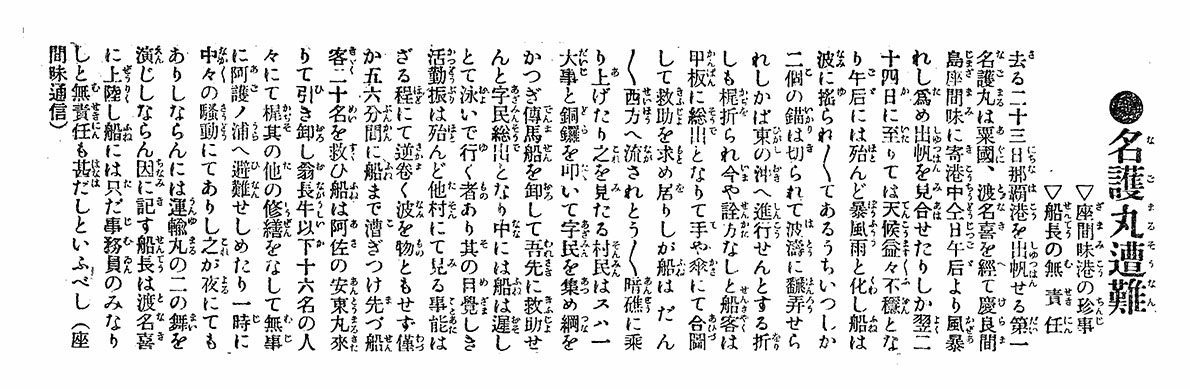 ●名護丸遭難
▽座間味港の珍事
▽船長の無責任
去る二十三日那覇港を出帆せる第一
名護丸は粟國、渡名喜を經て慶良間
島座間味に寄港中仝日午后より風暴
れし爲め出帆を見合せたりしか翌二
十四日に至りては天候益々不穩とな
り午后には殆んど暴風雨と化し船は
波に搖られ〱てあるうちいつしか
二個の錨は切られて波濤に飜弄せら
れしかば東の沖へ進行せんとする折
しも梶折られ今や詮方なしと船客は
甲板に總出となりて手や傘にて合圖
して救助を求め居りしが船はだん
〱西方へ流されとう〱暗礁に乘
り上げたり之を見たる村民はスハ一
大事と銅鑼を叩いて字民を集め綱を
かつぎ傳馬船を卸して吾先に救助せ
んと字民總出となり中には船は遲し
とて泳いで行く者あり其の日覺しき
活動振は殆んど他村にて見る事能は
ざる程にて逆卷く波を物ともせず僅
か五六分間に船まで漕ぎつけ先づ船
客二十名を救ひ船は阿佐の安東丸來
りて引き卸し翁長牛以下十六名の人
々にて梶其の他の修繕をなして無事
に阿護ノ浦へ避難せしめたり一時に
中々の騷動にてありし之が夜にても
ありしならんには運輸丸の二の舞を
演じしならん因に記す船長は渡名喜
に上陸し船には只だ事務員のみなり
しと無責任も甚だしといふべし（座
間味通信）